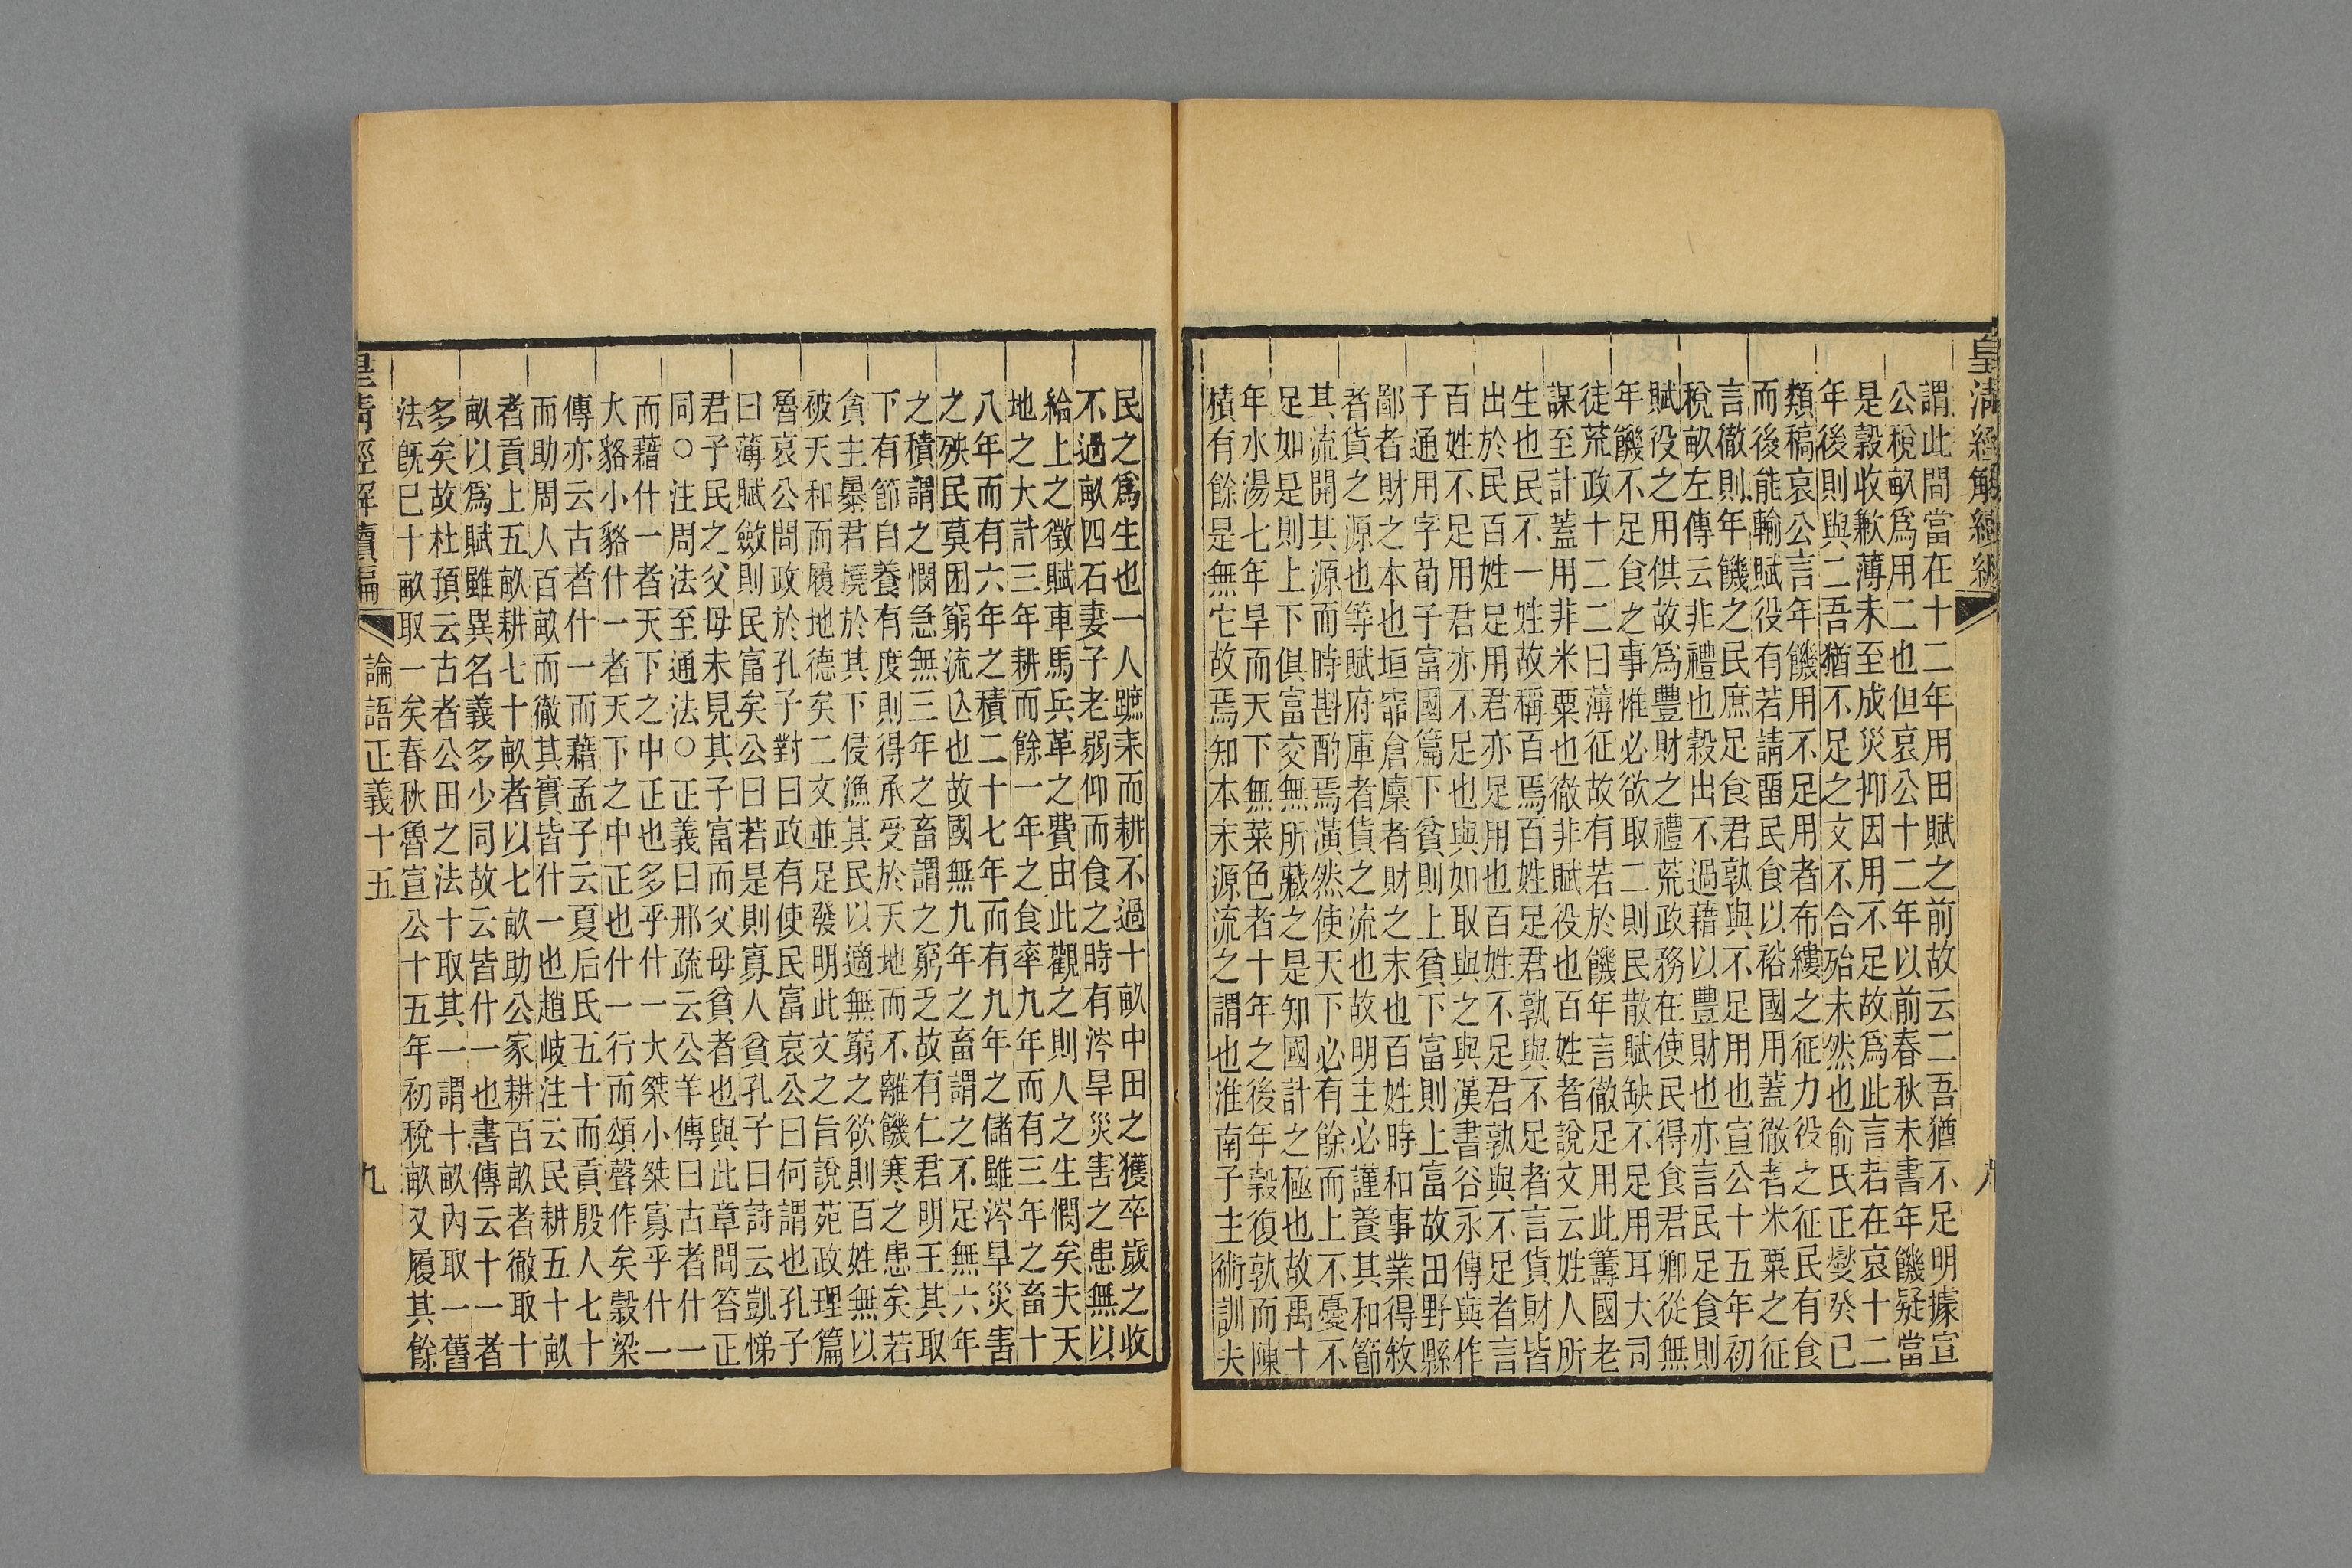 皇清經解續編
謂此問當在十二年用田賦之前故云二吾猶不足明據宣
公稅畝爲用二也但哀公十二年以前春秋未書年饑疑當
是穀收歉薄未至成災抑因用不足故爲此言若在哀十二
年後則與二吾猶不足之文不合殆未然也俞氏正燮癸巳
類稿哀公言年饑用不足用者布縷之征力役之征民有食
而後能輸賦役有若請畱民食以裕國用蓋徹者米粟之征
言徹則年饑之民庶足食君孰與不足用也宣公十五年初
稅畝左傳云非禮也穀出不過藉以豐財也亦言民足食則
賦役之用供故爲豐財之禮荒政務在使民得食君卿從無
年饑不足食之事惟必欲取二則民散賦缺不足用耳大司
徒荒政十二二曰薄征故有若於饑年言徹足用此籌國老
謀至計蓋用非米粟也徹非賦役也百姓者說文云姓人所
生也民不一姓故稱百焉百姓足君孰與不足者言貨財皆
出於民百姓足用君亦足用也百姓不足君孰與不足者言
百姓不足用君亦不足也與如取與之與漢書谷永傳與作
子通用字荀子富國篇下貧則上貧下富則上富故田野縣
鄙者財之本也垣窌倉廩者財之末也百姓時和事業得敘
者貨之源也等賦府庫者貨之流也故明主必謹養其和節
其流開其源而時斟酌焉潢然使天下必有餘而上不憂不
足如是則上下俱富交無所藏之是知國計之極也故禹十
年水湯七年旱而天下無菜色者十年之後年穀復孰而陳
積有餘是無它故焉知本末源流之謂也淮南子主術訓夫
民之爲生也一人蹠耒而耕不過十畝中田之獲卒歲之收
不過畝四石妻子老弱仰而食之時有涔旱災害之患無以
給上之徵賦車馬兵革之費由此觀之則人之生憫矣夫天
地之大計三年耕而餘一年之食率九年而有三年之畜十
八年而有六年之積二十七年而有九年之儲雖涔旱災害
之殃民莫困窮流亾也故國無九年之畜謂之不足無六年
之積謂之憫急無三年之畜謂之窮乏故有仁君明王其取
下有節自養有度則得承受於天地而不離饑寒之患矣若
貪主暴君撓於其下侵漁其民以適無窮之欲則百姓無以
被天和而履地德矣二文並足發明此文之旨說苑政理篇
魯哀公問政於孔子對曰政有使民富哀公曰何謂也孔子
曰薄賦斂則民富矣公曰若是則寡人貧孔子曰詩云凱悌
君子民之父母未見其子富而父母貧者也與此章問答正
同○注周法至通法○正義曰邢疏云公羊傳曰古者什一
而藉什一者天下之中正也多乎什一大桀小桀寡乎什一
大貉小貉什一者天下之中正也什一行而頌聲作矣穀梁
傳亦云古者什一而藉孟子云夏后氏五十而貢殷人七十
而助周人百畝而徹其實皆什一也趙岐注云民耕五十畝
者貢上五畝耕七十畝者以七畝助公家耕百畝者徹取十
畝以爲賦雖異名義多少同故云皆什一也書傳云十一者
多矣故杜預云古者公田之法十取其一謂十畝內取一舊
法旣已十畝取一矣春秋魯宣公十五年初稅畝又履其餘
皇清經解續編
論語正義十五
九